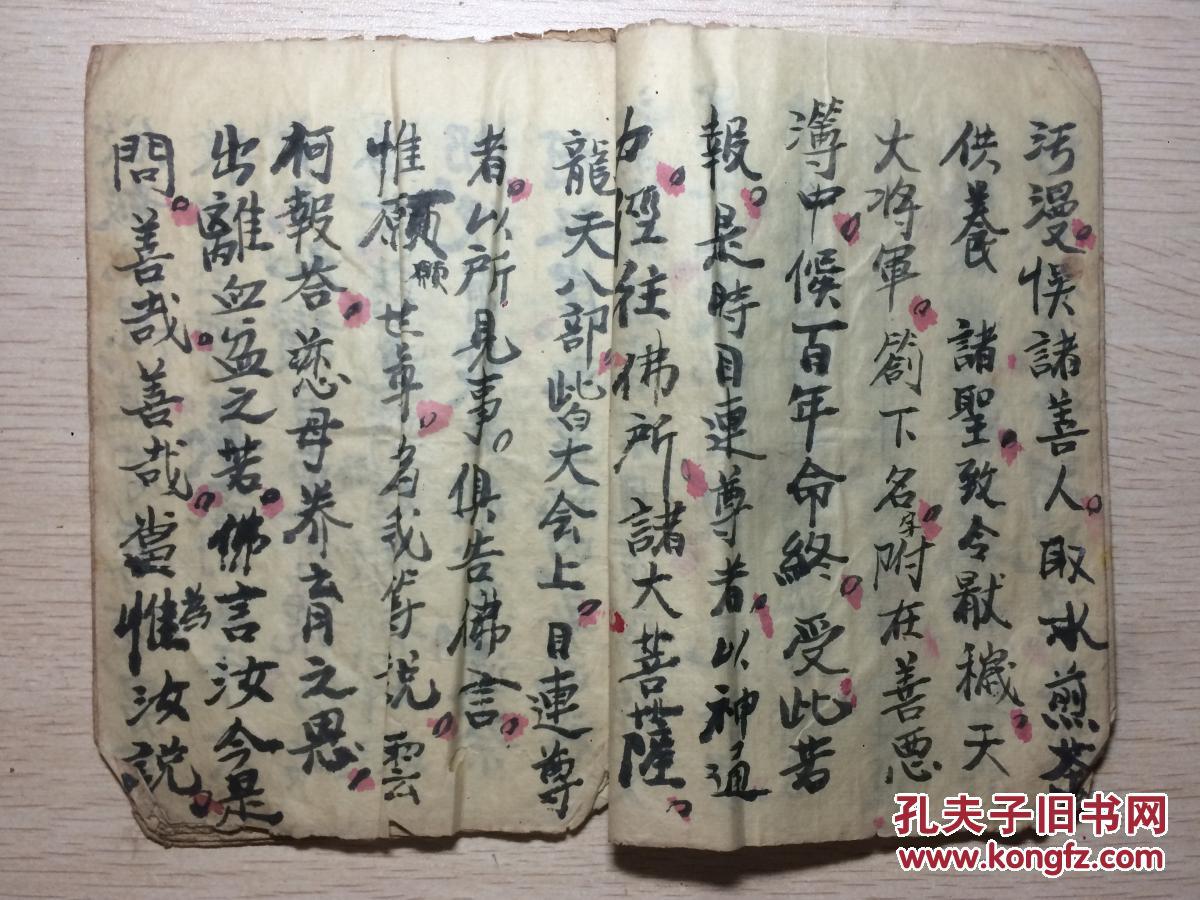 污漫悮諸善人取水煎茶
供養 諸聖致令猒穢天
大將軍劄下名字附在善惡
簿中候百年命終受此苦
報是時目連尊者以神通
力徑往佛所諸大菩薩
龍天八部皆大会上目連尊
者以所見事俱告佛言
惟願願世尊為我等説雲
柯報荅慈母养育之恩
出離血盆之苦佛言汝今是
問善哉善哉當為惟汝説
孔夫子旧书网
www.kongfz.com